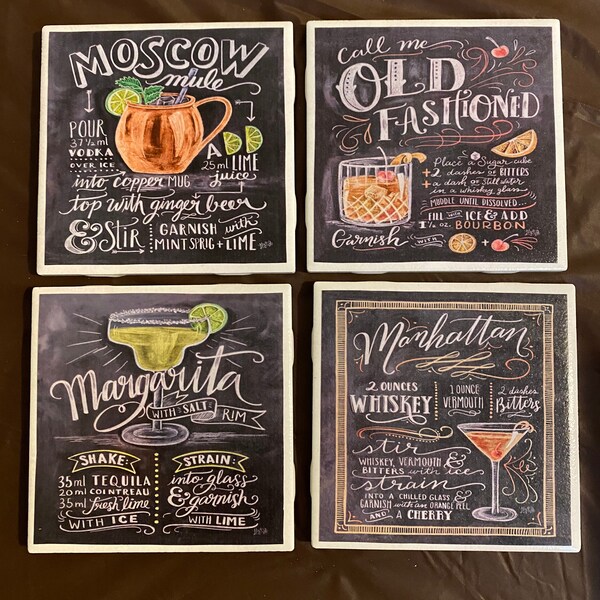 MOSCOW
mule
POUR
37 ½ ml
VODKA
OVER ICE
ADD
25 ml LIME
juice
into copper MUG
top with ginger beer
& STIR
GARNISH with
MINT SPRIG + LIME
call me
OLD
FASHIONED
Place a Sugar cube
+ 2 dashes of BITTERS
+ a dash of Still water
in a whiskey glass
MUDDLE UNTIL DISSOLVED...
FILL with ICE & ADD
1½ oz. BOURBON
Garnish WITH +
Margarita
WITH SALT RIM
SHAKE:
35ml TEQUILA
20ml COINTREAU
35ml fresh lime
WITH ICE
STRAIN:
into glass
& garnish
WITH LIME
Manhattan
2 OUNCES
WHISKEY
1 OUNCE
VERMOUTH
2 dashes
Bitters
stir
WHISKEY, VERMOUTH &
BITTERS with ice
strain
INTO A CHILLED GLASS &
GARNISH with an ORANGE PEEL
AND A CHERRY